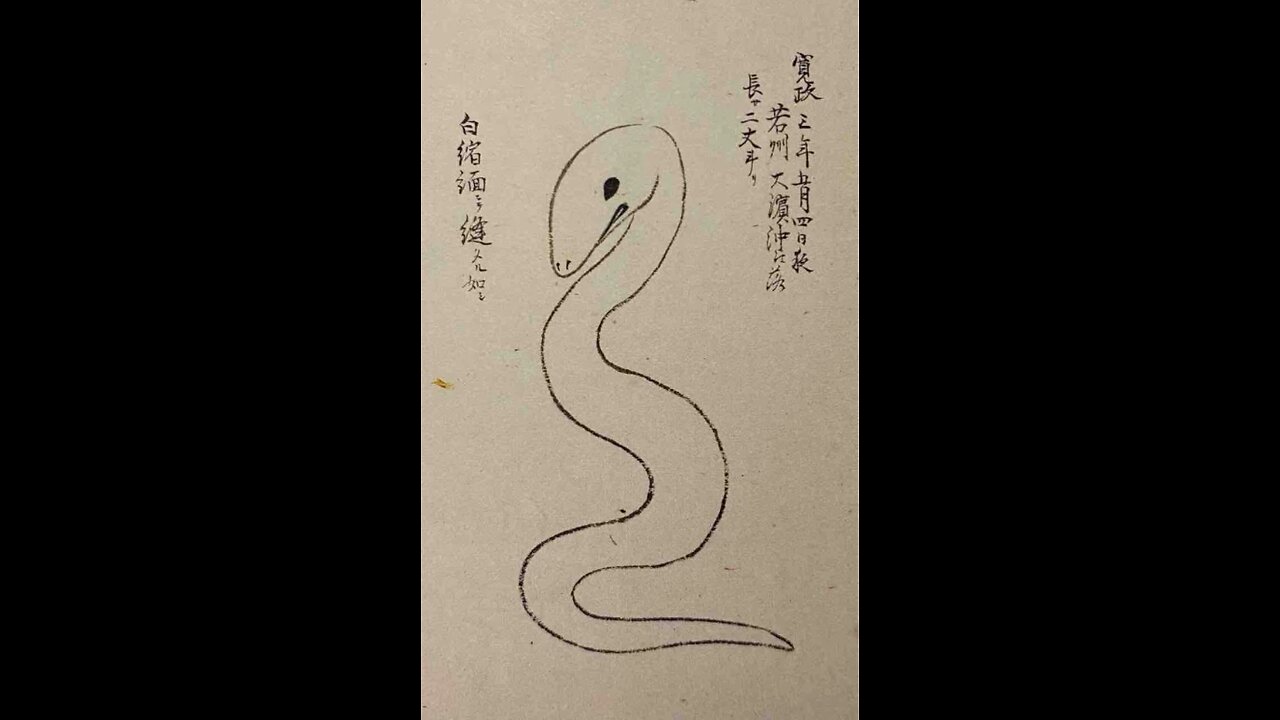 寛政三年五月四日夜
若州大濱沖に落
長サ二丈斗リ
白縮緬ニテ縫タル如シ